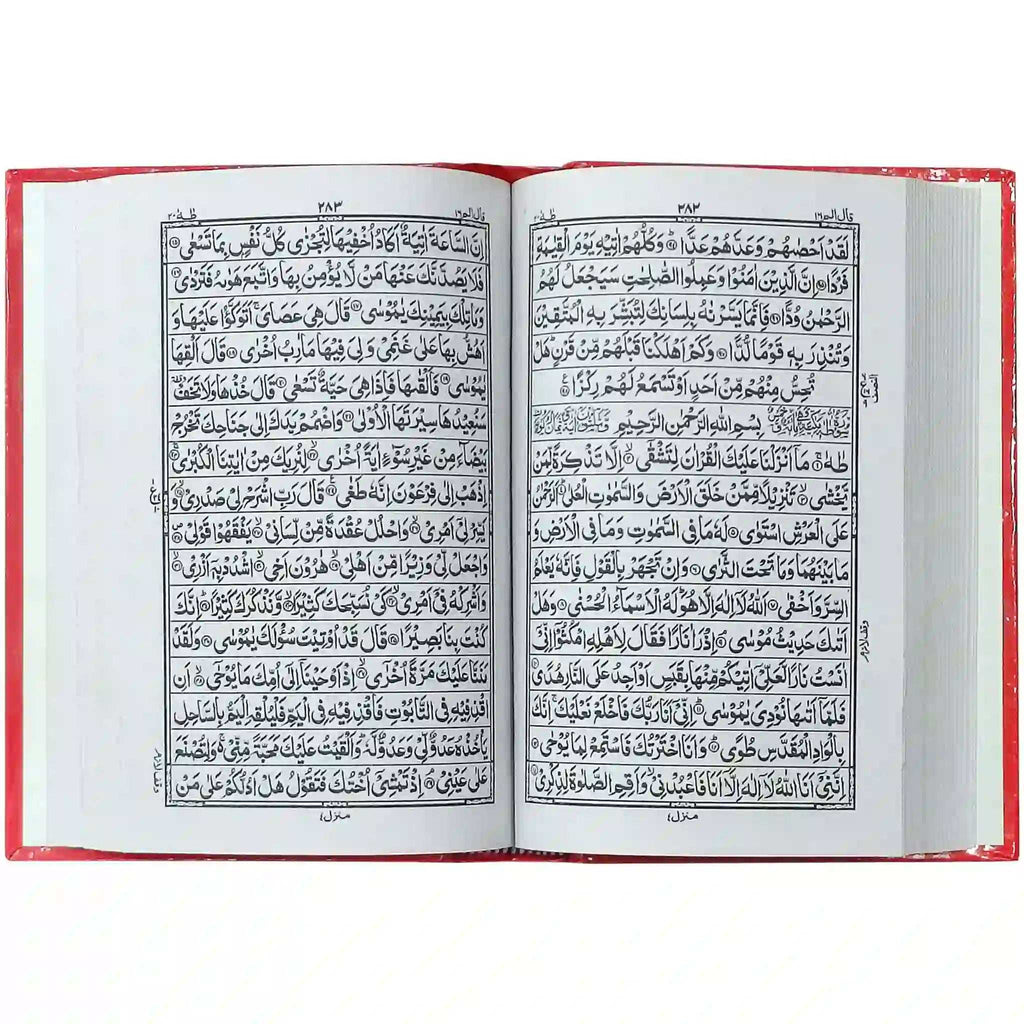 قال الم ١٦
٢٨٢
طٰهٰ ٢٠
لَقَدْ اَحْصٰىهُمْ وَعَدَّهُمْ عَدًّا ۞ وَكُلُّهُمْ اٰتِيْهِ يَوْمَ الْقِيٰمَةِ
فَرْدًا ۞ اِنَّ الَّذِيْنَ اٰمَنُوْا وَعَمِلُوا الصّٰلِحٰتِ سَيَجْعَلُ لَهُمُ
الرَّحْمٰنُ وُدًّا ۞ فَاِنَّمَا يَسَّرْنٰهُ بِلِسَانِكَ لِتُبَشِّرَ بِهِ الْمُتَّقِيْنَ
وَتُنْذِرَ بِهٖ قَوْمًا لُّدًّا ۞ وَكَمْ اَهْلَكْنَا قَبْلَهُمْ مِّنْ قَرْنٍ هَلْ
تُحِسُّ مِنْهُمْ مِّنْ اَحَدٍ اَوْ تَسْمَعُ لَهُمْ رِكْزًا ۞
بِسْمِ اللهِ الرَّحْمٰنِ الرَّحِيْمِ
طٰهٰ ۞ مَا اَنْزَلْنَا عَلَيْكَ الْقُرْاٰنَ لِتَشْقٰى ۞ اِلَّا تَذْكِرَةً لِّمَنْ
يَّخْشٰى ۞ تَنْزِيْلًا مِّمَّنْ خَلَقَ الْاَرْضَ وَالسَّمٰوٰتِ الْعُلٰى ۞ اَلرَّحْمٰنُ
عَلَى الْعَرْشِ اسْتَوٰى ۞ لَهٗ مَا فِى السَّمٰوٰتِ وَمَا فِى الْاَرْضِ وَ
مَا بَيْنَهُمَا وَمَا تَحْتَ الثَّرٰى ۞ وَاِنْ تَجْهَرْ بِالْقَوْلِ فَاِنَّهٗ يَعْلَمُ
السِّرَّ وَاَخْفٰى ۞ اَللهُ لَا اِلٰهَ اِلَّا هُوَ لَهُ الْاَسْمَآءُ الْحُسْنٰى ۞ وَهَلْ
اَتٰىكَ حَدِيْثُ مُوْسٰى ۞ اِذْ رَاٰ نَارًا فَقَالَ لِاَهْلِهِ امْكُثُوْٓا اِنِّيْٓ
اٰنَسْتُ نَارًا لَّعَلِّيْٓ اٰتِيْكُمْ مِّنْهَا بِقَبَسٍ اَوْ اَجِدُ عَلَى النَّارِ هُدًى ۞
فَلَمَّآ اَتٰىهَا نُوْدِيَ يٰمُوْسٰى ۞ اِنِّيْٓ اَنَا رَبُّكَ فَاخْلَعْ نَعْلَيْكَ ۚ اِنَّكَ
بِالْوَادِ الْمُقَدَّسِ طُوًى ۞ وَاَنَا اخْتَرْتُكَ فَاسْتَمِعْ لِمَا يُوْحٰى ۞
اِنَّنِيْٓ اَنَا اللهُ لَآ اِلٰهَ اِلَّآ اَنَا فَاعْبُدْنِيْ ۙ وَاَقِمِ الصَّلٰوةَ لِذِكْرِيْ ۞
منزل ٤
٢٨٣
طٰهٰ ٢٠
اِنَّ السَّاعَةَ اٰتِيَةٌ اَكَادُ اُخْفِيْهَا لِتُجْزٰى كُلُّ نَفْسٍ بِمَا تَسْعٰى ۞
فَلَا يَصُدَّنَّكَ عَنْهَا مَنْ لَّا يُؤْمِنُ بِهَا وَاتَّبَعَ هَوٰىهُ فَتَرْدٰى ۞
وَمَا تِلْكَ بِيَمِيْنِكَ يٰمُوْسٰى ۞ قَالَ هِيَ عَصَايَ ۚ اَتَوَكَّؤُا عَلَيْهَا وَ
اَهُشُّ بِهَا عَلٰى غَنَمِيْ وَلِيَ فِيْهَا مَاٰرِبُ اُخْرٰى ۞ قَالَ اَلْقِهَا
يٰمُوْسٰى ۞ فَاَلْقٰىهَا فَاِذَا هِيَ حَيَّةٌ تَسْعٰى ۞ قَالَ خُذْهَا وَلَا تَخَفْ
سَنُعِيْدُهَا سِيْرَتَهَا الْاُوْلٰى ۞ وَاضْمُمْ يَدَكَ اِلٰى جَنَاحِكَ تَخْرُجْ
بَيْضَآءَ مِنْ غَيْرِ سُوْٓءٍ اٰيَةً اُخْرٰى ۞ لِنُرِيَكَ مِنْ اٰيٰتِنَا الْكُبْرٰى ۞
اِذْهَبْ اِلٰى فِرْعَوْنَ اِنَّهٗ طَغٰى ۞ قَالَ رَبِّ اشْرَحْ لِيْ صَدْرِيْ ۞ وَ
يَسِّرْ لِيْٓ اَمْرِيْ ۞ وَاحْلُلْ عُقْدَةً مِّنْ لِّسَانِيْ ۞ يَفْقَهُوْا قَوْلِيْ ۞
وَاجْعَلْ لِّيْ وَزِيْرًا مِّنْ اَهْلِيْ ۞ هٰرُوْنَ اَخِي ۞ اشْدُدْ بِهٖٓ اَزْرِيْ ۞
وَاَشْرِكْهُ فِيْٓ اَمْرِيْ ۞ كَيْ نُسَبِّحَكَ كَثِيْرًا ۞ وَّنَذْكُرَكَ كَثِيْرًا ۞ اِنَّكَ
كُنْتَ بِنَا بَصِيْرًا ۞ قَالَ قَدْ اُوْتِيْتَ سُؤْلَكَ يٰمُوْسٰى ۞ وَلَقَدْ
مَنَنَّا عَلَيْكَ مَرَّةً اُخْرٰى ۞ اِذْ اَوْحَيْنَآ اِلٰٓى اُمِّكَ مَا يُوْحٰى ۞ اَنِ
اقْذِفِيْهِ فِى التَّابُوْتِ فَاقْذِفِيْهِ فِى الْيَمِّ فَلْيُلْقِهِ الْيَمُّ بِالسَّاحِلِ
يَاْخُذْهُ عَدُوٌّ لِّيْ وَعَدُوٌّ لَّهٗ ۚ وَاَلْقَيْتُ عَلَيْكَ مَحَبَّةً مِّنِّيْ ۚ وَلِتُصْنَعَ
عَلٰى عَيْنِيْ ۞ اِذْ تَمْشِيْٓ اُخْتُكَ فَتَقُوْلُ هَلْ اَدُلُّكُمْ عَلٰى مَنْ
منزل ٤